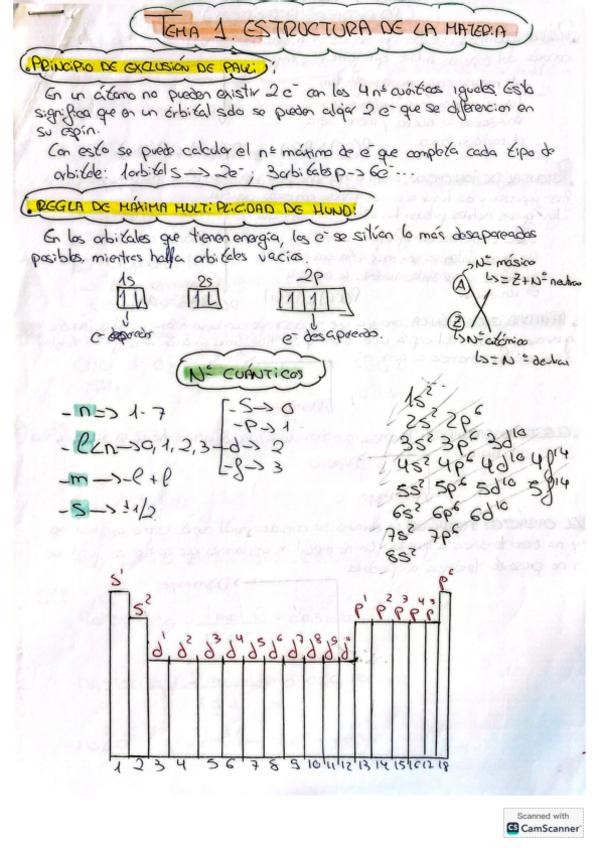 TEMA 1. ESTRUCTURA DE LA MATERIA
PRINCIPIO DE EXCLUSIÓN DE PAULI:
En un átomo no pueden existir 2 e⁻ con los 4 nº cuánticos iguales. Esto
significa que en un orbital sólo se pueden alojar 2 e⁻ que se diferencian en
su espín.
Con esto se puede calcular el nº máximo de e⁻ que completa cada tipo de
orbital: 1 orbital s → 2e⁻; 3 orbitales p → 6e⁻...
REGLA DE MÁXIMA MULTIPLICIDAD DE HUND:
En los orbitales que tienen energía, los e⁻ se sitúan lo más desapareados
posibles, mientras halla orbitales vacios.
1s 2s 2p
e⁻ e⁻ desapareados
A → Nº másico
↳ = Z + Nº neutros
Z → Nº atómico
↳ = Nº
Nº CUÁNTICOS
- n => 1-7
- l < n → 0, 1, 2, 3
- S → 0
- P → 1
- d → 2
- f → 3
- m → -l + l
- s → ±1/2
1s²
2s² 2p⁶
3s² 3p⁶ 3d¹⁰
4s² 4p⁶ 4d¹⁰ 4f¹⁴
5s² 5p⁶ 5d¹⁰ 5f¹⁴
6s² 6p⁶ 6d¹⁰
7s² 7p⁶
8s²
s¹ s² d¹ d² d³ d⁴ d⁵ d⁶ d⁷ d⁸ d⁹ p¹ p² p³ p⁴ p⁵ p⁶
1 2 3 4 5 6 7 8 9 10 11 12 13 14 15 16 17 18
Scanned with
CS CamScanner